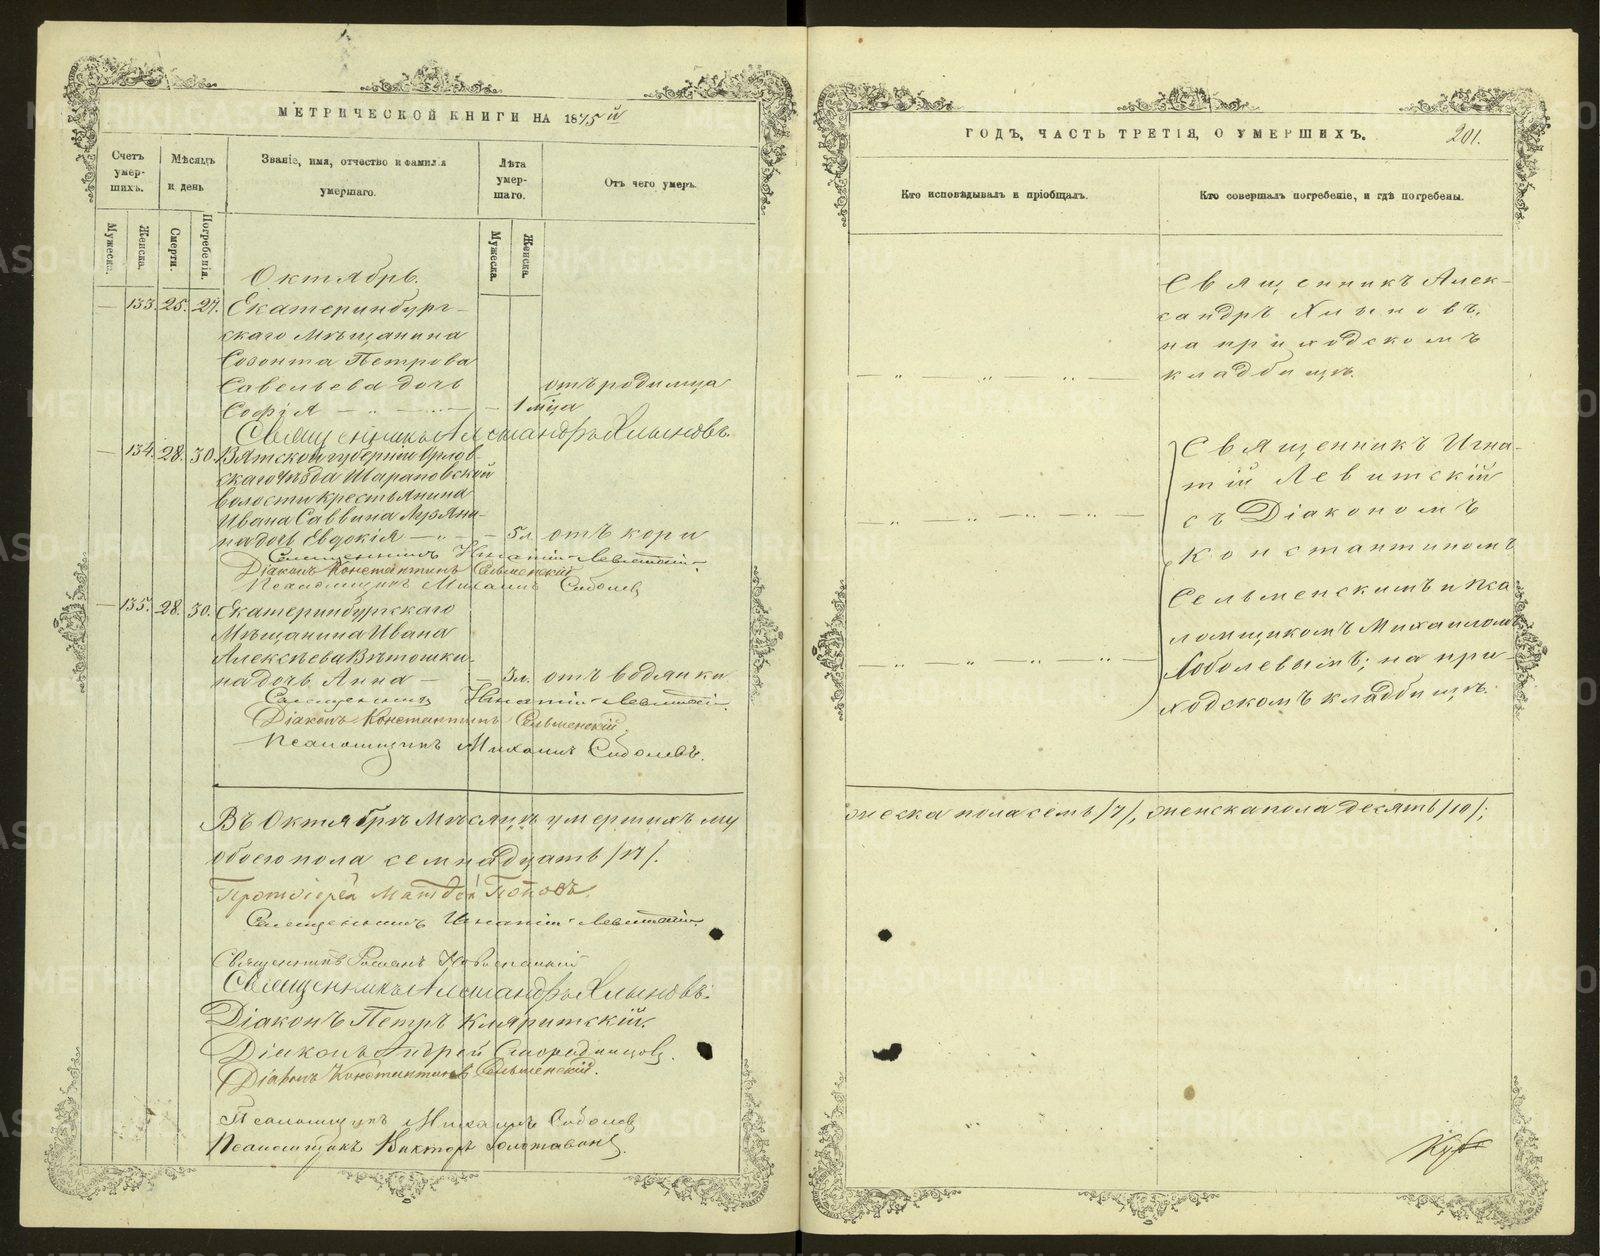 МЕТРИЧЕСКОЙ КНИГИ НА 1875й
Счетъ умер-шихъ.
Мѣсяцъ и день
Званіе, имя, отчество и фамилія
умершаго.
Лѣта умер-шаго.
Отъ чего умеръ.
Мужеска.
Женска.
Смерти.
Погребенія.
Мужеска.
Женска.
Октябрь.
— 133. 25. 27. Екатеринбург-
скаго мѣщанина
Созонта Петрова
Савельева дочь отъ родимца
Софія — 1 мѣца
Священникъ Александръ Хлыновъ.
— 134. 28. 30. Вятской губерніи Орлов-
скаго уѣзда Шараповской
волости крестьянина
Ивана Саввина Лузяни-
на дочь Евдокія — 5 л. отъ кори
Священникъ Игнатій Левитскій.
Діаконъ Константинъ Сельменскій
Псаломщикъ Михаилъ Соболев
— 135. 28. 30. Екатеринбургскаго
мѣщанина Ивана
Алексѣева Вѣтошки-
на дочь Анна — 3 л. отъ водянки
Священникъ Игнатій Левитскій.
Діаконъ Константинъ Сельменскій
Псаломщикъ Михаилъ Соболевъ.
Въ Октябрѣ мѣсяцѣ умершихъ му
обоего пола семнадцать /17/.
Протоіерей Матѳей Поповъ.
Священникъ Игнатій Левитскій.
Священникъ Романъ
Священникъ Александръ Хлыновъ.
Діаконъ Петръ Кляритскій.
Діаконъ Андрей Смородинцов.
Діаконъ Константинъ Сельменскій.
Псаломщикъ Михаилъ Соболев
Псаломщикъ Викторъ
ГОДЪ, ЧАСТЬ ТРЕТІЯ, О УМЕРШИХЪ.
201.
Кто исповѣдывалъ и пріобщалъ.
Кто совершалъ погребеніе, и гдѣ погребены.
Священникъ Алек-
сандръ Хлыновъ,
на приходскомъ
кладбищѣ.
Священникъ Игна-
тій Левитскій
съ Діакономъ
Константиномъ
Сельменскимъ и пса
ломщикомъ Михаиломъ
Соболевымъ; на при-
ходскомъ кладбищѣ.
жеска пола семь /7/, женска пола десять /10/;
METRIKI.GASO-URAL.RU